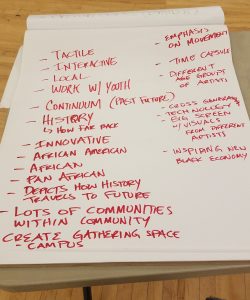 - TACTILE
- INTERACTIVE
- LOCAL
- WORK W/ YOUTH
- CONTINUUM (PAST FUTURE)
- HISTORY
↳ HOW FAR BACK
- INNOVATIVE
- AFRICAN AMERICAN
- AFRICAN
- PAN AFRICAN
- DEPICTS HOW HISTORY
TRAVELS TO FUTURE
- LOTS OF COMMUNITIES
WITHIN COMMUNITY
CREATE GATHERING SPACE
- CAMPUS
- EMPHASIS
ON MOVEMENT
- TIME CAPSULE
- DIFFERENT
AGE GROUPS OF
ARTISTS
- CROSS
- TECHNOLOGY
BIG SCREEN
W/ VISUALS
FROM DIFFERENT
ARTISTS
- INSPIRING NEW
BLACK ECONOMY